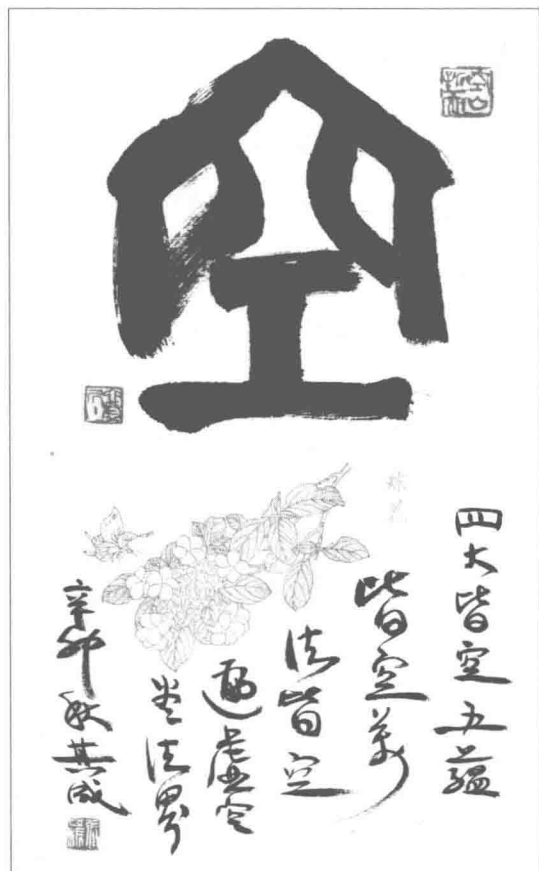 空
四大皆空五蘊
皆空萬
法皆空
遍虚空
尽法界
辛卯秋其成